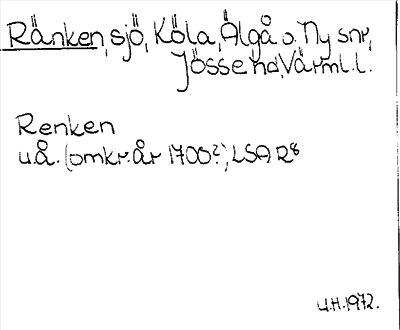 Ränken, sjö, Köla, Älgå o. Ny snr,
Jösse hd, Värml. l.
Renken
u.å. (omkr. år 1700?), LSA R8
U.H. 1972.